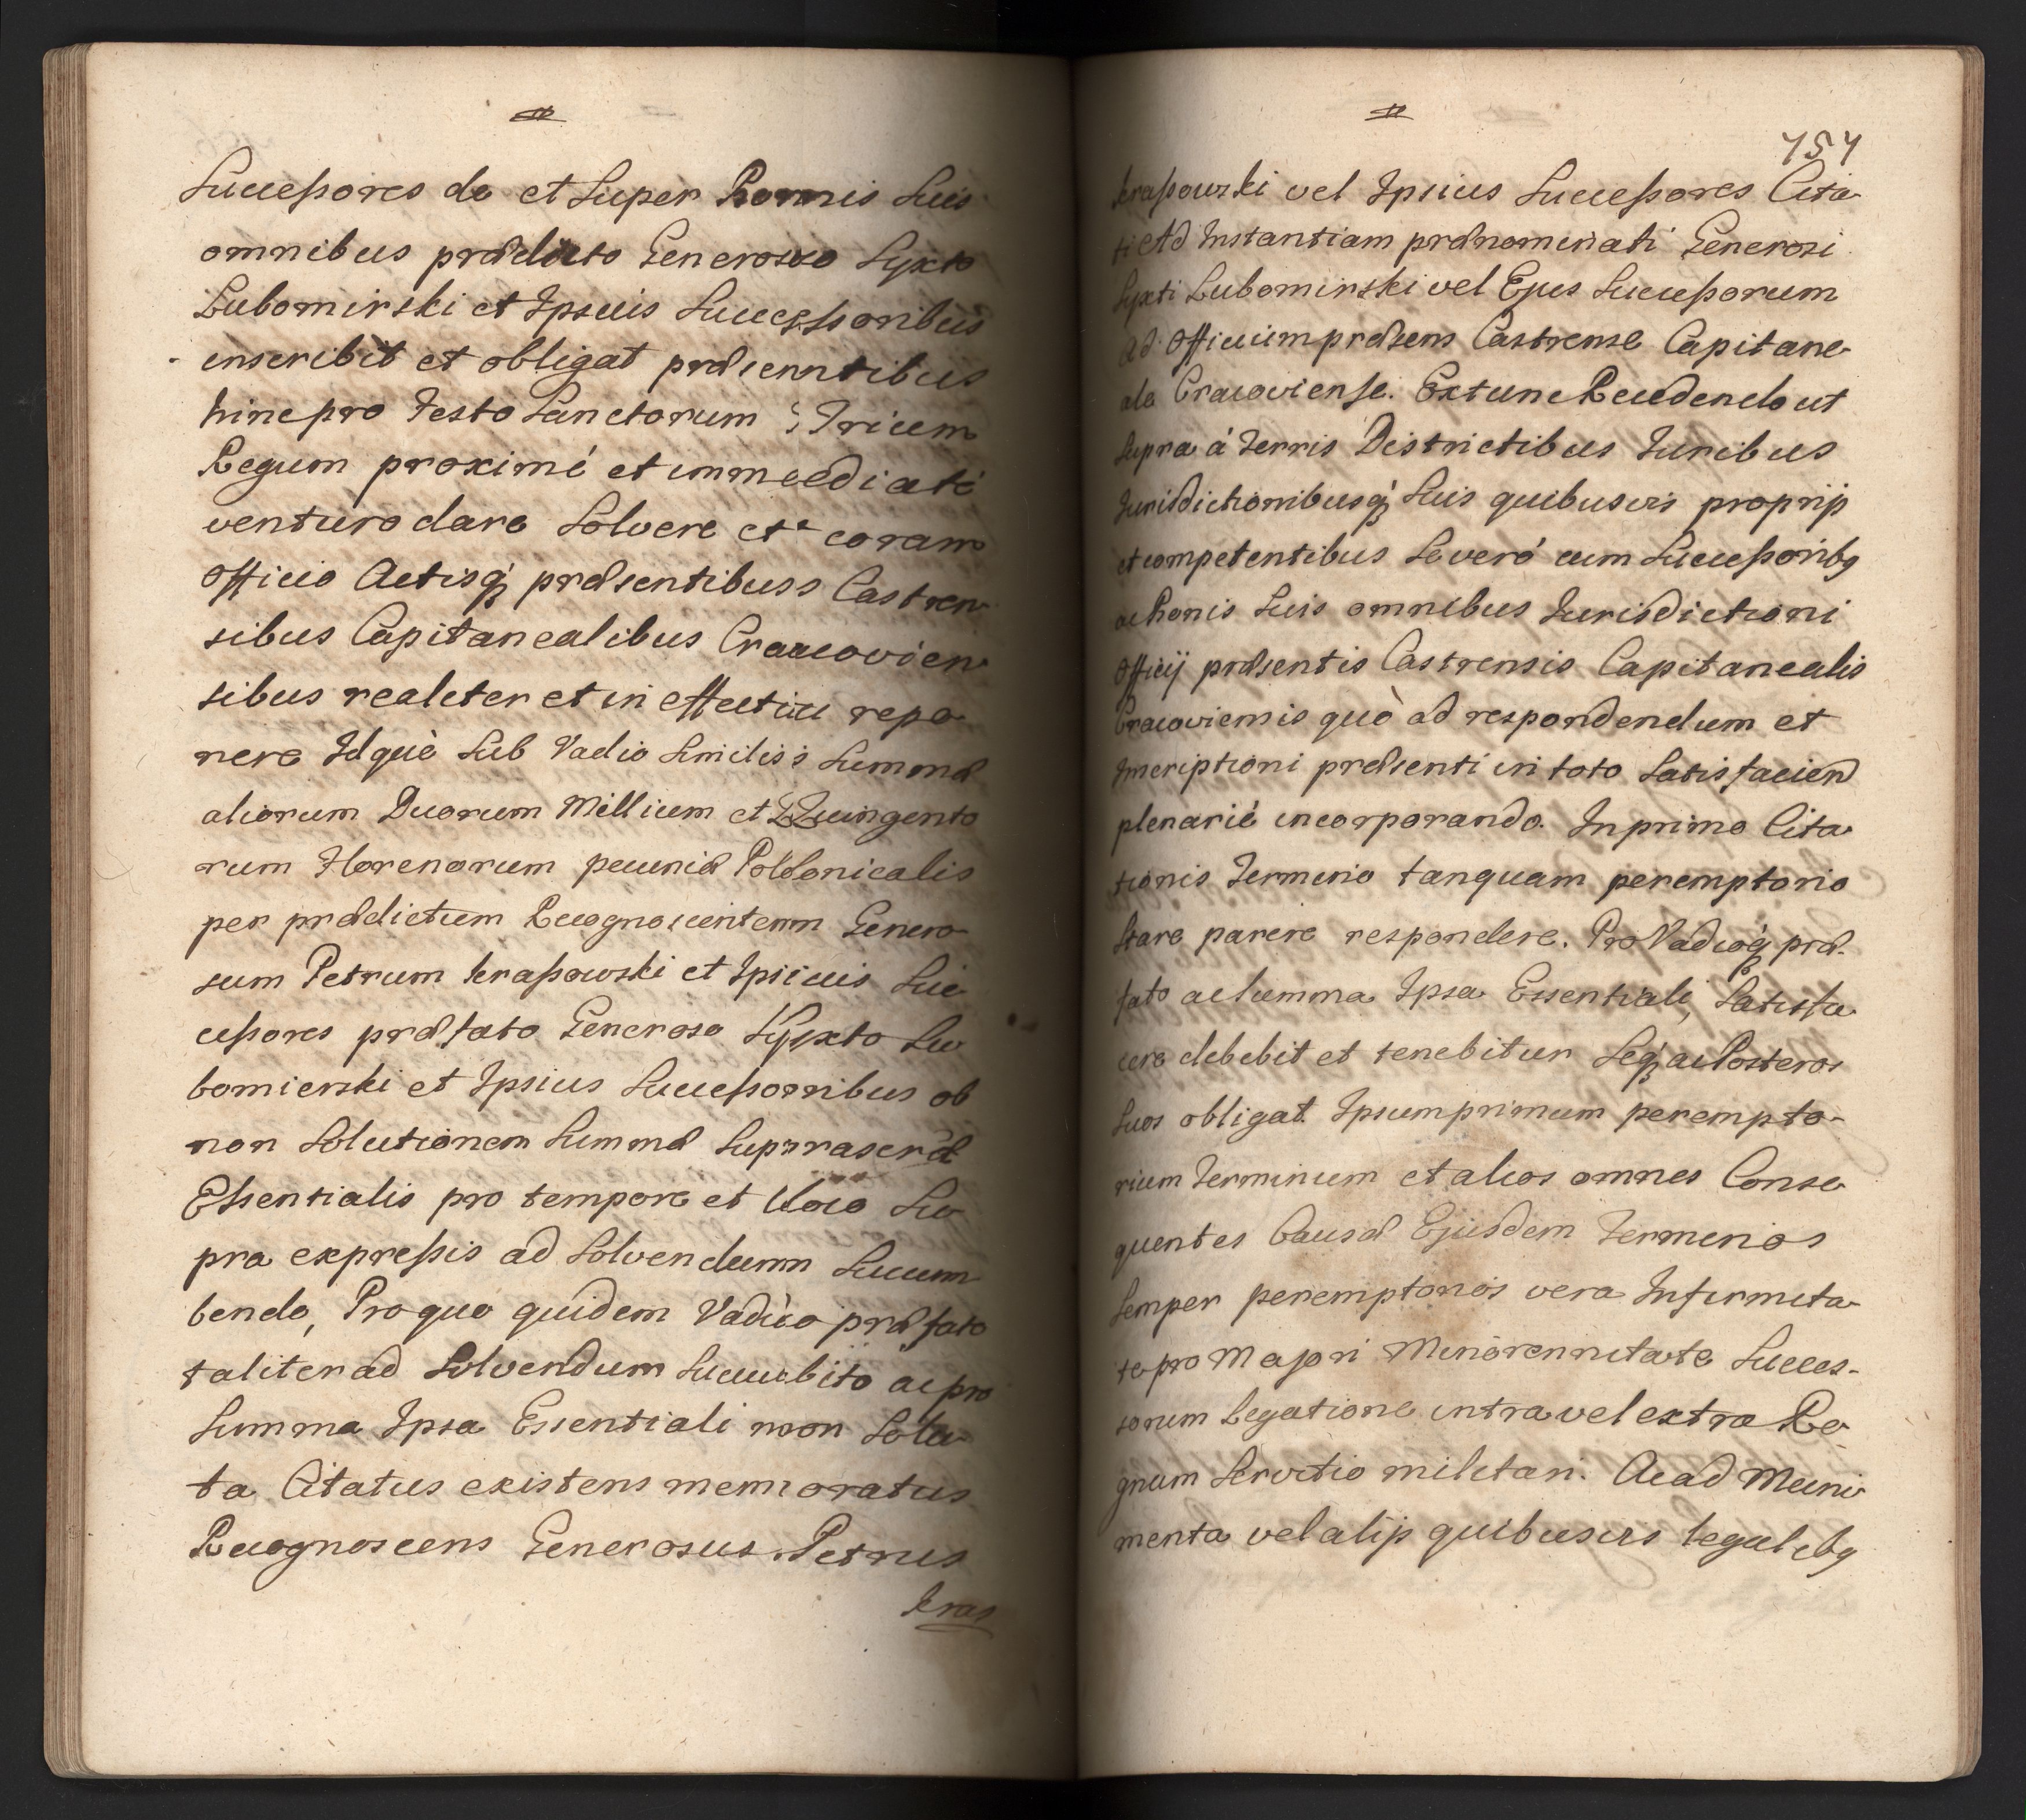 Successores de et Super Bonnis Suis
omnibus prædicto Generoso Syxto
Lubomirski et Ipsius Successoribus
inscribit et obligat præsenntibus
hinc pro Festo Sanctorum Trium
Regum proximé et immeediaté
venturo dare Solvere etc coram
Officio Actisq́ præsentibuss Castren
sibus Capitanealibus Cracovien
sibus realiter et in effectivi repo
nere Idquè Sub Vadio Similis Summæ
aliorum Duorum Millium et Quingento
rum Florenorum pecuniæ Polonicalis
per prædictum Recognoscentem Genero
sum Petrum Kraßowski et Ipsius Suc
ceßores præfato Generoso Syxto Lu
bomierski et Ipsius Succeßoribus ob
non Solutionem Summæ Suprascrӕ
Eßentialis pro tempore et Loco Su
pra expreßis ad Solvendumn Succum
bendo, Pro quo quidem Vadio præfato
taliter ad Solvendum Succubito ac pro
Summa Ipsa Essentiali non Solu
ta Citatus existens memoratus
Recognoscens Generosus Petrus
Kras
757
Kraßowski vel Ipsius Succeßores Cita
ti Ad Instantiam prænominati Generosi
Syxti Lubomirski vel Ejus Succeßorum
ad Officium præsens Castrense Capitane
ale Cracoviense. Extunc Recedendo ut
Supra á Terris Districtibus Juribus
Jurisdictionibusq́ Suis quibusvis proprijs
et competentibus Se veró cum Succeßoribq
ac Bonis Suis omnibus Jurisdictioni
Officij præsentis Castrensis Capitanealis
Cracoviensis quò ad respondendum et
Inscriptioni præsenti in toto Satisfaciend
plenarié incorporando. In primo Cita
tionis Termino tanquam peremptorio
Stare parere respondere. Pro Vadioq́ præ
fato ac Summa Ipsa Essentiali, Satisfa
cere debebit et tenebitur Seq́ ac Posteros
Suos obligat. Ipsum primum perempto-
rium Terminum et alios omnes Conse
quentes Causæ Ejusdem Terminos
Semper peremptorios vera Infirmita
te pro Majori Minorennitate Succes-
sorum Legatione intra vel extra Re
gnum Servitio militari. Ac ad Muni
menta vel alijs quibusvis legalibq